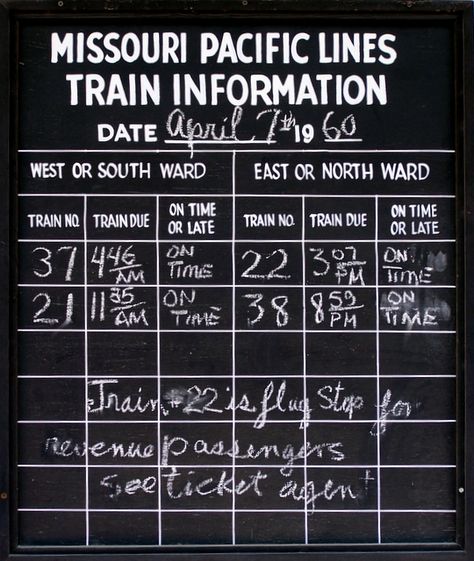 MISSOURI PACIFIC LINES
TRAIN INFORMATION
DATE April 7th 19 60
WEST OR SOUTH WARD EAST OR NORTH WARD
TRAIN NO. TRAIN DUE ON TIME OR LATE TRAIN NO. TRAIN DUE ON TIME OR LATE
37 4 46 AM ON TIME 22 3 07 PM ON TIME
21 11 35 AM ON TIME 38 8 59 PM ON TIME
Train #22 is flag Stop for
revenue passengers
See ticket agent